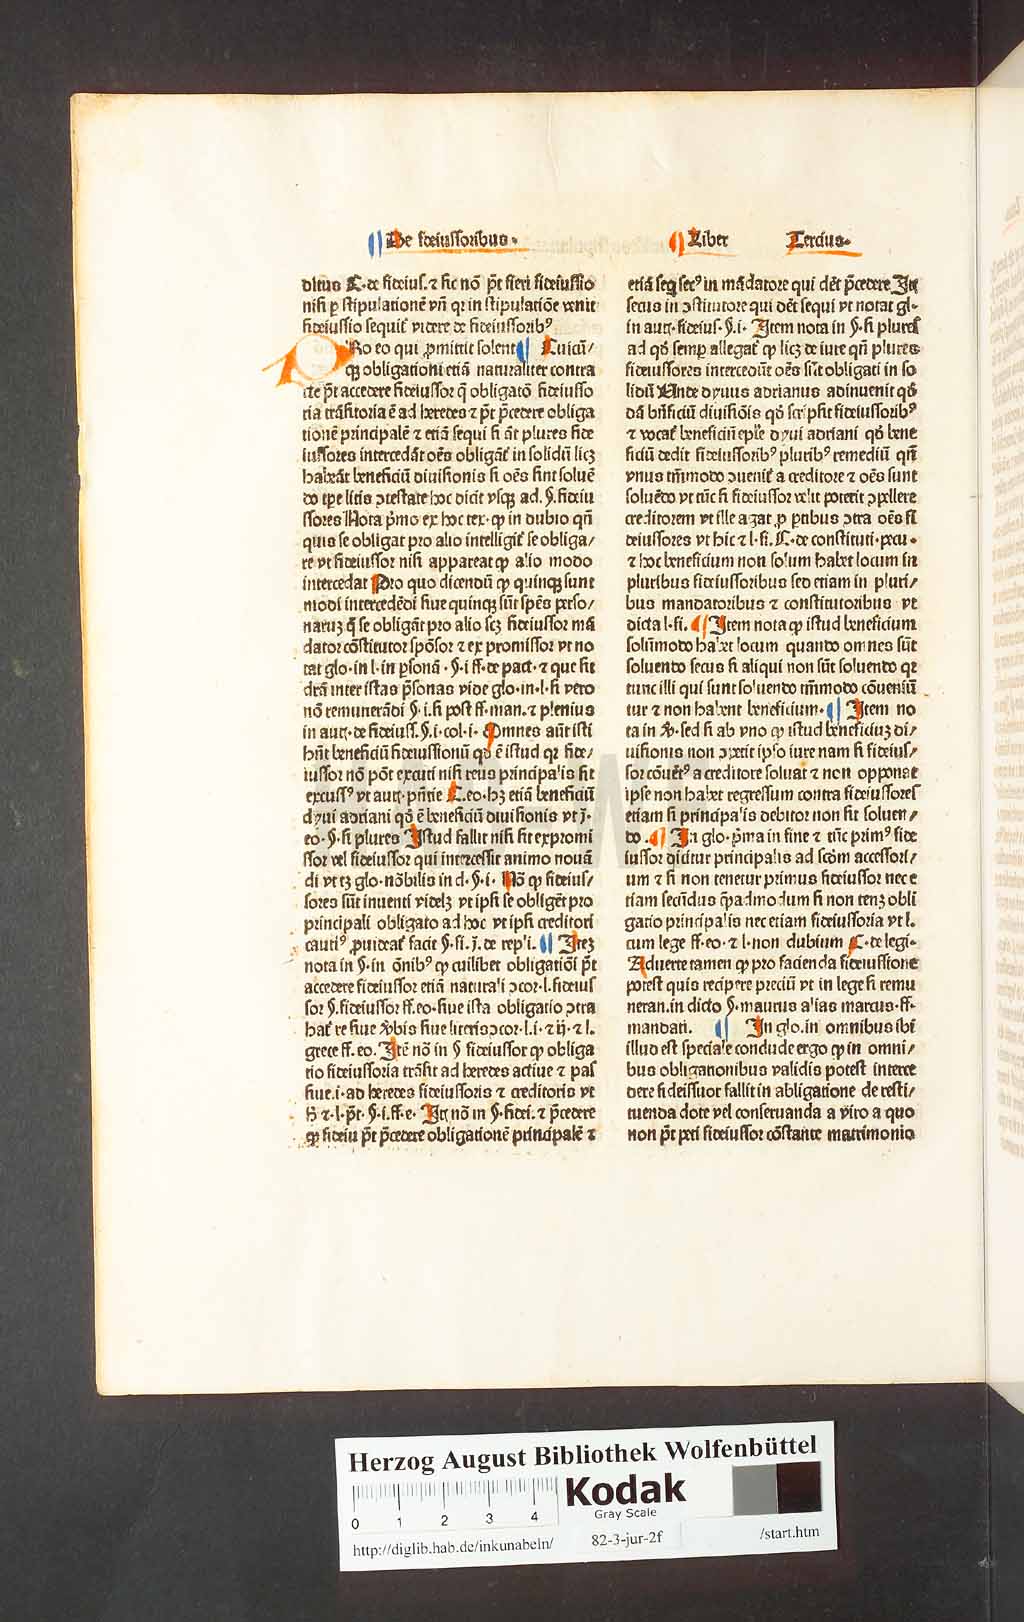 De fideiussoribus.
Liber Tercius.
ditus C. de fideius. ⁊ sic nō p̄t fieri fideiussio
nisi ꝑ stipulationē vn̄ qr in stipulatiōe venit
fideiussio sequit᷑ videre de fideiussorib⁹
PRo eo qui ꝓmittit solent Cuicū/
qꝫ obligationi etiā naturaliter contra
cte p̄t accedere fideiussor q̄ obligatō fideiusso
ria trāsitoria ē ad heredes ⁊ p̄t p̄cedere obliga
tionē principalē ⁊ etiā sequi si āt plures fide
iussores intercedāt oēs obligāt᷑ in solidū licꝫ
habeāt beneficiū diuisionis si oēs sint soluē
do tꝑe litis ↄtestate hoc dicit vsqꝫ ad. §. fideiu
ssores Nota p̄mo ex hoc tex. ꝙ in dubio qn̄
quis se obligat pro alio intelligit᷑ se obliga/
re vt fideiussor nisi appareat ꝙ alio modo
intercedat Pro quo dicendū ꝙ quinqꝫ sunt
modi intercedēdi siue quinqꝫ sūt spēs perso/
naruꝫ q̄ se obligāt pro alio scꝫ fideiussor mā
dator cōstitutor spōsor ⁊ ex promissor vt no
tat glo. in l. in ꝑsonā. §. i ff. de pact. ⁊ que sit
dr̄a inter istas ꝑsonas vide glo. in. l. si vero
nō remunerādi §. i. si post ff. man. ⁊ plenius
in aut̄. de fideiuss. §. i. col. i. Omnes aūt isti
hn̄t beneficiū fideiussionū qd̄ ē istud qr fide/
iussor nō pōt excuti nisi reus principalis sit
excuss⁹ vt aut̄. pn̄tie C. eo. hꝫ etiā beneficiū
dyui adriani qd̄ ē beneficiū diuisionis vt j.
eo. §. si plures Istud fallit nisi sit expromi
ssor vel fideiussor qui intercessit animo nouā
di vt tꝫ glo. nōbilis in d. §. i. Nō ꝙ fideius/
sores sūt inuenti videlꝫ vt ipsi se obligēt pro
principali obligato ad hoc vt ipsi creditori
cauti⁹ ꝓuideat᷑ facit §. fi. j. de rep'i. Iteꝫ
nota in §. in ōnib⁹ ꝙ cuilibet obligatiōi p̄t
accedere fideiussor etiā naturali ↄcor. l. fideius
sor §. fideiussor ff. eo. siue ista obligatio ↄtra
hat᷑ re siue v̄bis siue literis ↄcor. l. i. ⁊ ij. ⁊ l.
grece ff. eo. Itē nō in § fideiussor ꝙ obliga
tio fideiussoria trāsit ad heredes actiue ⁊ pas
siue. i. ad heredes fideiussoris ⁊ creditoris vt
h̄ ⁊. l. p̄t. §. i. ff. e. Itē nō in §. fidei. ⁊ p̄cedere
ꝙ fideiu p̄t p̄cedere obligationē principalē ⁊
etiā seq̄ sec⁹ in mādatore qui dēt p̄cedere Itē
secus in ↄstitutore qui dēt sequi vt notat gl.
in aut̄. fideius. §. i. Item nota in §. si plures
ad qd̄ semꝑ allegat᷑ ꝙ licꝫ de iure qn̄ plures
fideiussores intercedūt oēs sūt obligati in so
lidū Vnde dyuus adrianus adinuenit qd̄
dā bn̄ficiū diuisiōis qd̄ scripsit fideiussorib⁹
⁊ vocat᷑ beneficiū epl̄e dyui adriani qd̄ bene
ficiū dedit fideiussorib⁹ plurib⁹ remediū qn̄
vnus tm̄modo ↄuenit᷑ a creditore ⁊ oēs sunt
soluēdo vt tūc si fideiussor velit poterit ↄpellere
creditorem vt ille agat ꝓ ꝑtibus ↄtra oēs fi
deiussores vt hic ⁊ l. fi. C. de constituti. pecu.
⁊ hoc beneficium non solum habet locum in
pluribus fideiussoribus sed etiam in pluri/
bus mandatoribus ⁊ constitutoribus vt
dicta l. fi. Item nota ꝙ istud beneficium
solūmodo habet locum quando omnes sūt
soluendo secus si aliqui non sūt soluendo qr
tunc illi qui sunt soluendo tm̄modo cōueniū
tur ⁊ non habent beneficium. Item no
ta in v̄. sed si ab vno ꝙ istud beneficiuꝫ di/
uisionis non ↄpetit ipso iure nam si fideius/
sor cōuēt⁹ a creditore soluat ⁊ non opponat
ipse non habet regressum contra fideiussores
etiam si principalis debitor non sit soluen/
do. In glo. p̄ma in fine ⁊ tūc prim⁹ fide
iussor dicitur principalis ad scd̄m accessori/
um ⁊ si non tenetur primus fideiussor nec e
tiam secūdus q̄admodum si non tenꝫ obli
gatio principalis nec etiam fideiussoria vt l.
cum lege ff. eo. ⁊ l. non dubium C. de legi.
Aduerte tamen ꝙ pro facienda fideiussione
potest quis recipere preciū vt in lege si remu
neran. in dicto §. maurus alias marcus. ff.
mandati. In glo. in omnibus ibi
illud est speciale conclude ergo ꝙ in omni/
bus obligationibus validis potest interce
dere fideissuor fallit in abligatione de resti/
tuenda dote vel conseruanda a viro a quo
non p̄t peti fideiussor cōstante matrimonio
Herzog August Bibliothek Wolfenbüttel
0 1 2 3 4
Kodak
Gray Scale
http://diglib.hab.de/inkunabeln/ 82-3-jur-2f /start.htm